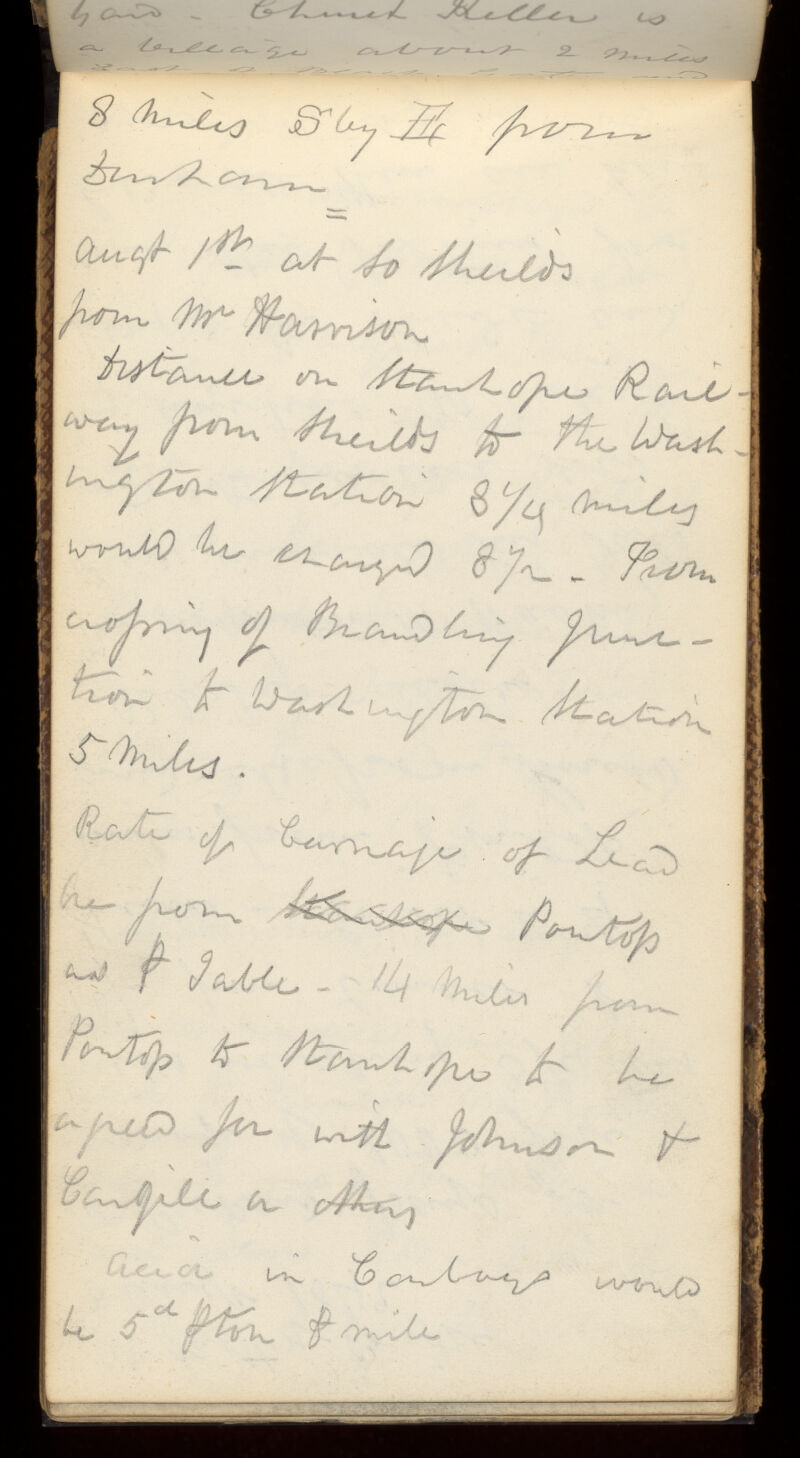 hard - Church Kellar is
a village about 2 miles
8 miles S by E from
Durham
=
Augt 1st at So Sheilds
from Mr Harrison
Distance on Stanhope Rail-
way from Sheilds to the Wash-
ington Station 8 1/4 miles
would be charged 8 1/2 - From
crossing of Brandling Junc-
tion to Washington Station
5 Miles.
Rate of Carriage of Lead
be from Stanhope Pontop
as ⅌ Table - 14 Miles from
Pontop to Stanhope to be
agreed for with Johnson &
Cargill or others
Acid in Carboys would
be 5d ⅌ ton ⅌ mile